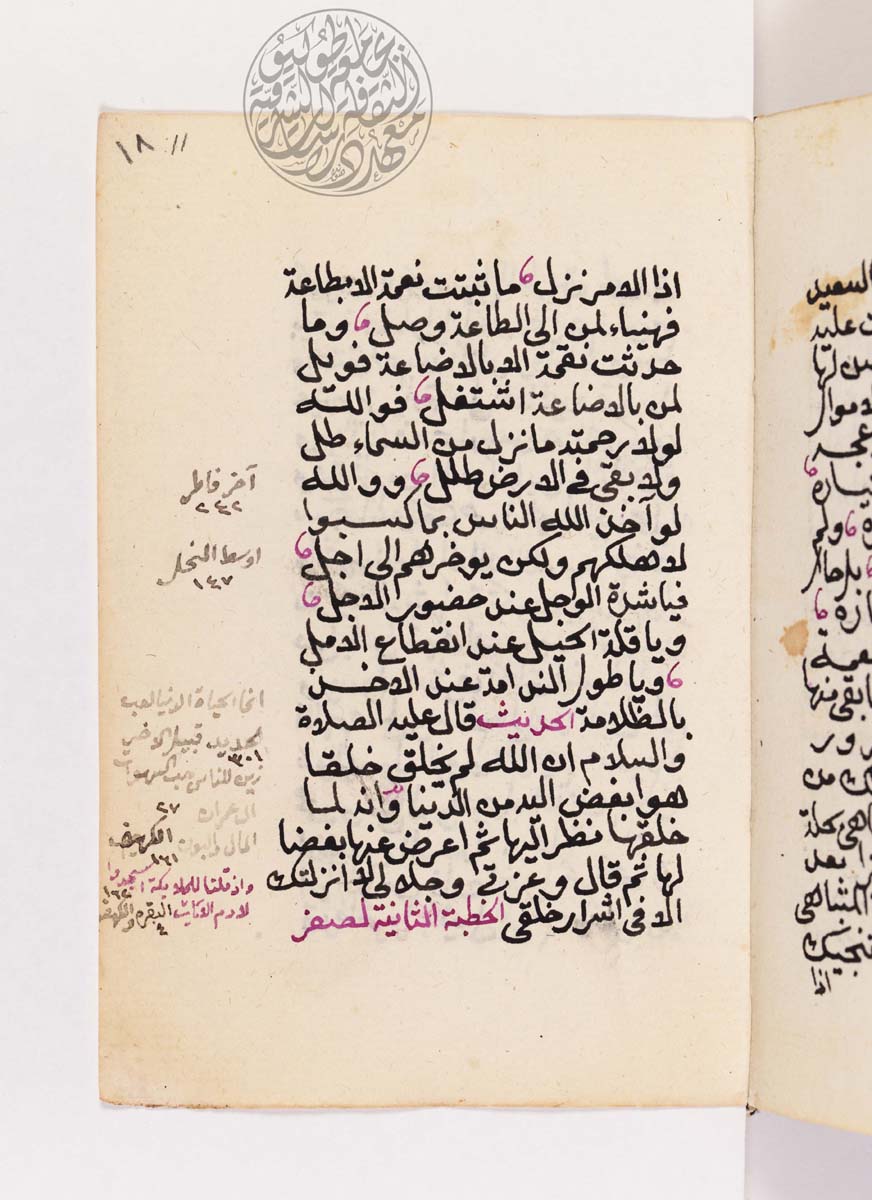 ١٨
اذا الامر نزل ما ثبتت نعمة الا بطاعة
فهنياء لمن الى الطاعة وصل وما
حدثت نقمة الا بالاضاعة فويل
لمن بالاضاعة اشتغل فو الله
لولا رحمته ما نزل من السماء طل
ولا بقى فى الارض طلل ووالله
لو آخذ الله الناس بما كسبوا
لاهلكهم ولكن يوخرهم الى اجل
فيا شدة الوجل عند حضور الاجل
ويا قلة الحيل عند انقطاع الامل
ويا طول الندامة عند الاخـــذ
بالظلامة الحديث قال عليه الصلاة
والسلام ان الله لم يخلق خلقا
هو ابغض اليه من الدنيا وانه لما
خلقها نظر اليها ثم اعرض عنها بغضا
لها ثم قال وعزتى وجلالى لا انزلتك
الا فى اشرار خلقى الخطبة الثانية لصفر
آخر فاطر
٢٤٢
اوسط النحل
١٤٧
انما الحياة الدنيا لعب
الحديد
٣٠١
زين للناس حب الشهوات
ال عمران
٢٧
المال والبنون الكهف
١٦١
واذ قلنا للملايكة اسجدوا
١٦٢
لادم البقره والكهف
٤
السعيد
ت عليه
الاموال
ولم
بقى منها
بعد
اذا